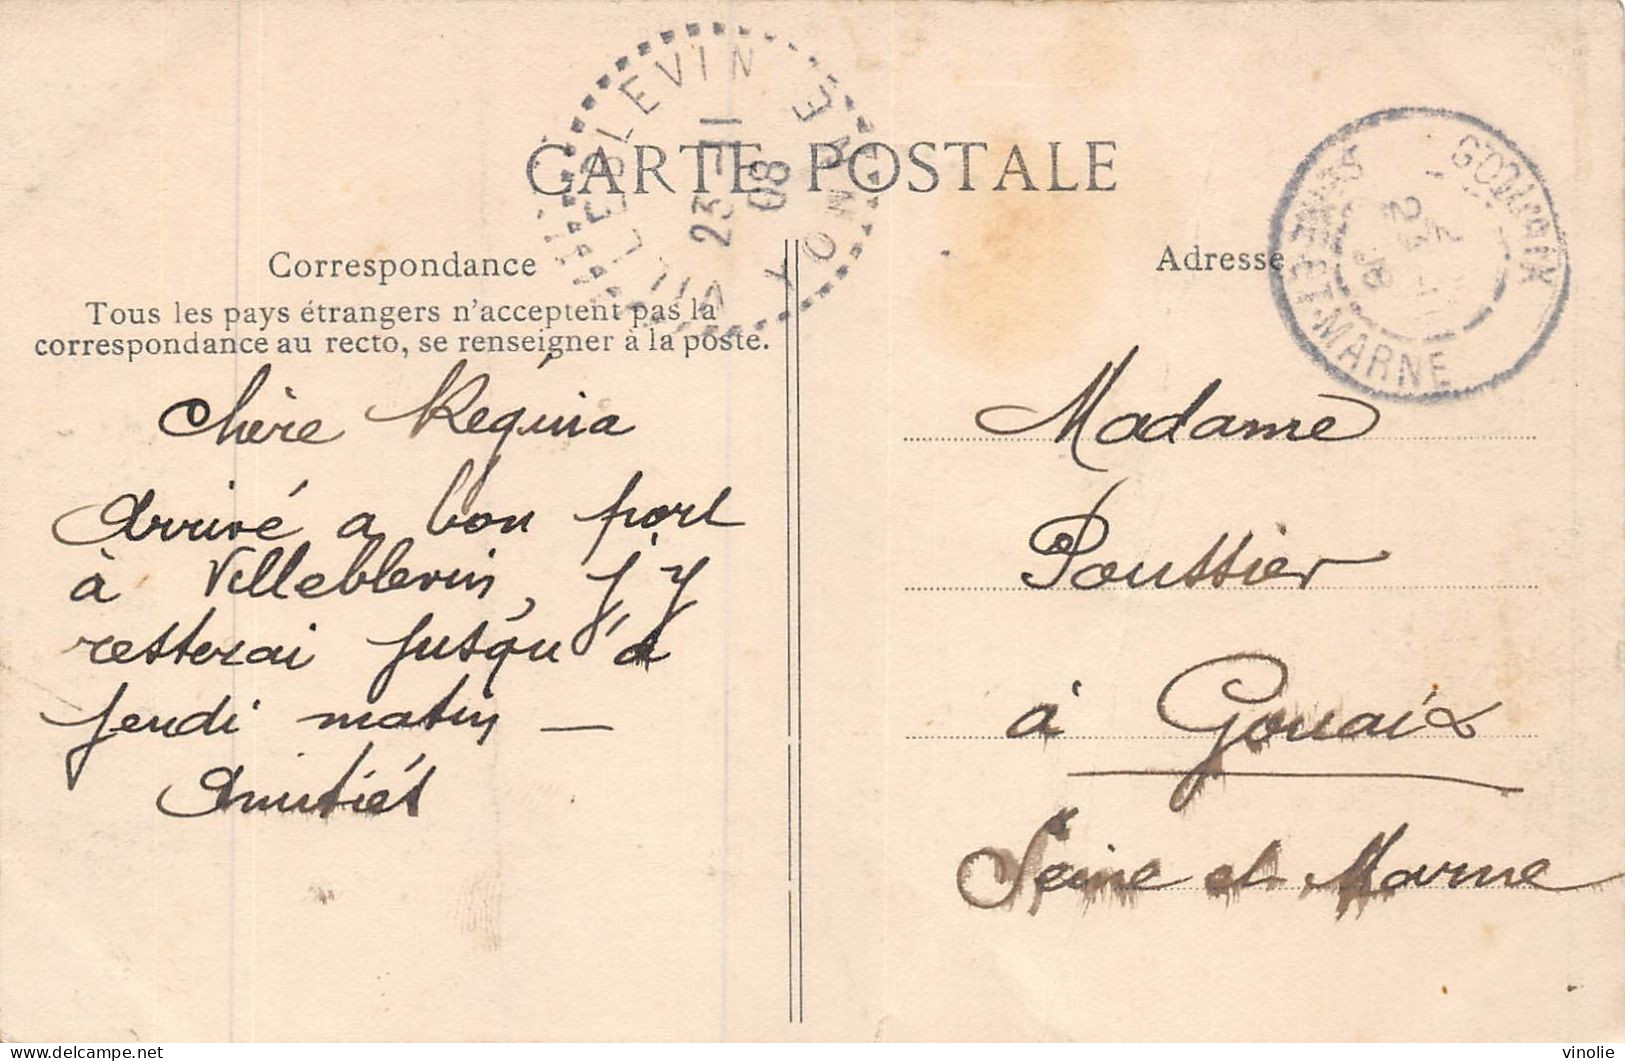 CARTE POSTALE
VILLEBLEVIN YONNE
23 -11
08
GOUAIX
SEINE-ET-MARNE
Correspondance
Tous les pays étrangers n'acceptent pas la
correspondance au recto, se renseigner à la poste.
Chère Régina
Arrivé a bon port
à Villeblevin, j'y
resterai jusqu'à
jeudi matin —
Amitiés
Adresse
Madame
Poussier
à Gouaix
Seine et Marne
vinolie